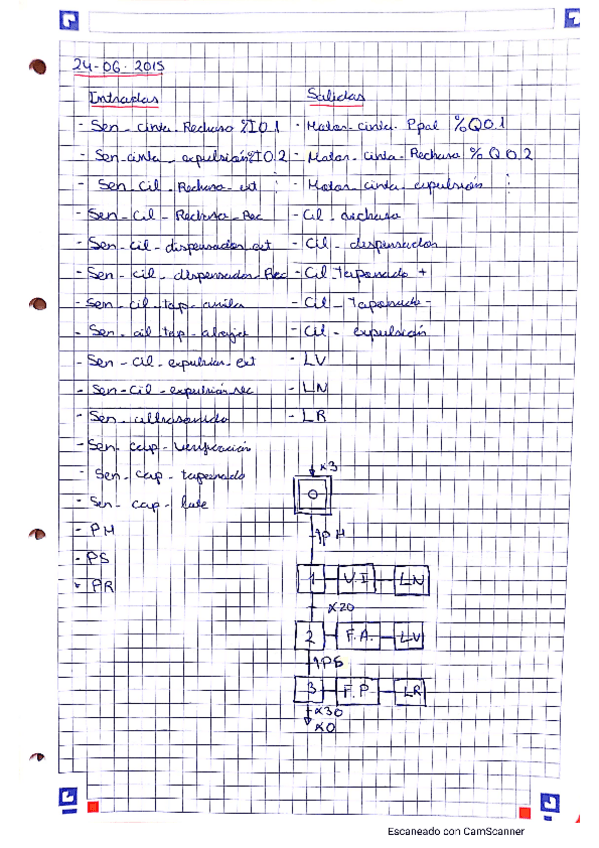 24-06-2015
Entradas
Salidas
- Sen-cinta-Rechazo %I0.1
- Motor-cinta-Ppal %Q0.1
- Sen-cinta-expulsión %I0.2
- Motor-cinta-Rechazo %Q0.2
- Sen-Cil-Rechazo-ext
- Motor-cinta-expulsión
- Sen-Cil-Rechazo-Rec
- Cil-rechazo
- Sen-cil-dispensador-ext
- Cil-dispensador
- Sen-cil-dispensador-Rec
- Cil-Taponado +
- Sen-cil-tap-arriba
- Cil-Taponado -
- Sen-cil-tap-abajo
- Cil-expulsión
- Sen-cil-expulsion-ext
- LV
- Sen-Cil-expulsión-rec
- LN
- Sen-ultrasonido
- LR
- Sen-cap-verificación
- Sen-cap-taponado
- Sen-cap-lote
- PM
- PS
- PR
X3
0
↑PM
1 V.I LN
X20
2 F.A. LV
↑PS
3 F.P LR
X30
X0
Escaneado con CamScanner